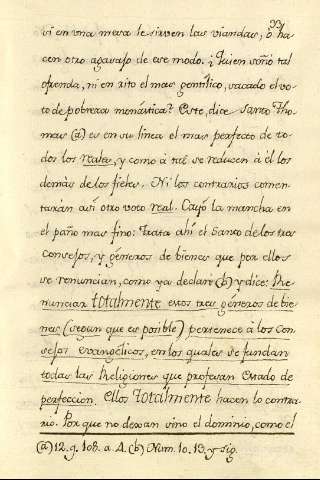 si en una mesa le sirven las viandas, ò ha
cen otro agasajo de ese modo. ¿Quien soñò tal
ofrenda, ni en rito el mas gentilico, sacado el vo
to de pobreza monástica? Este, dice Santo Tho
mas (a) es en su linea el mas perfecto de to-
dos los reales, y como à tal se reducen à él los
demàs de los fieles. Ni los contrarios comen-
tarán asi otro voto real. Cayó la mancha en
el paño mas fino: Trata ahi el Santo de los tres
Consejos, y géneros de bienes que por ellos
se renuncian, como ya declarè (b) y dice: Re-
nunciar totalmente esos tres géneros de bie-
nes (segun que es posible) pertenece à los Con-
sejos evangélicos, en los quales se fundan
todas las Religiones que profesan estado de
perfeccion. Ellos totalmente hacen lo contra-
rio. Por que no dexan sino el dominio, como el
(a) 12. q. 108. a. 4. (b) Num. 10. 13. y sig.